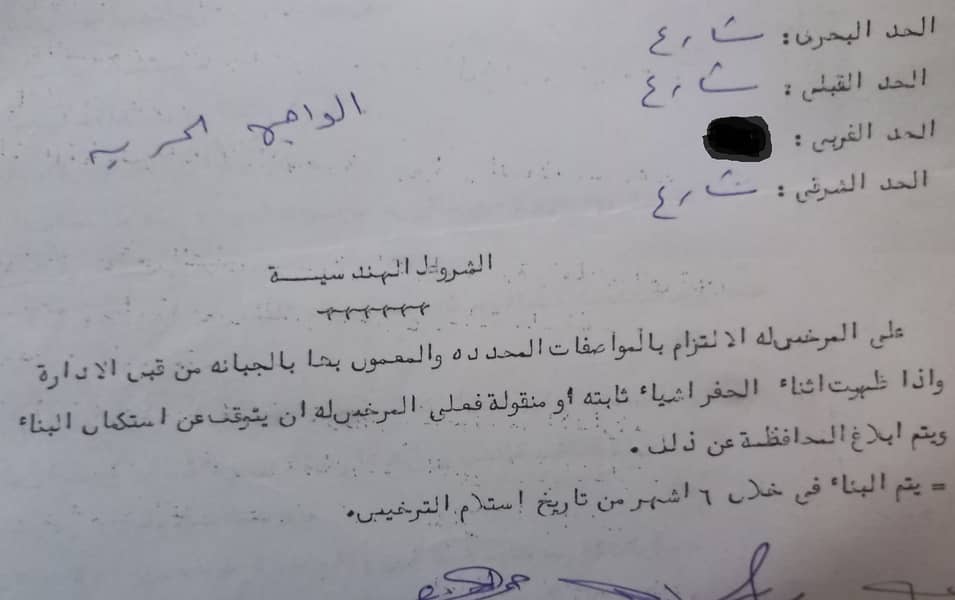 الحد البحرى: شارع
الحد القبلى: شارع
الحد الغربى:
الحد الشرقى: شارع
الواجهه البحريه
الشروط الهندسيـــة
على المرخص له الالتزام بالمواصفات المحدده والمعمول بها بالجبانه من قبل الادارة
واذا ظهرت اثناء الحفر اشياء ثابته أو منقولة فعلى المرخص له ان يتوقف عن استكمال البناء
ويتم ابلاغ المحافظة عن ذلك .
= يتم البناء فى خلال ٦ اشهر من تاريخ استلام الترخيص.